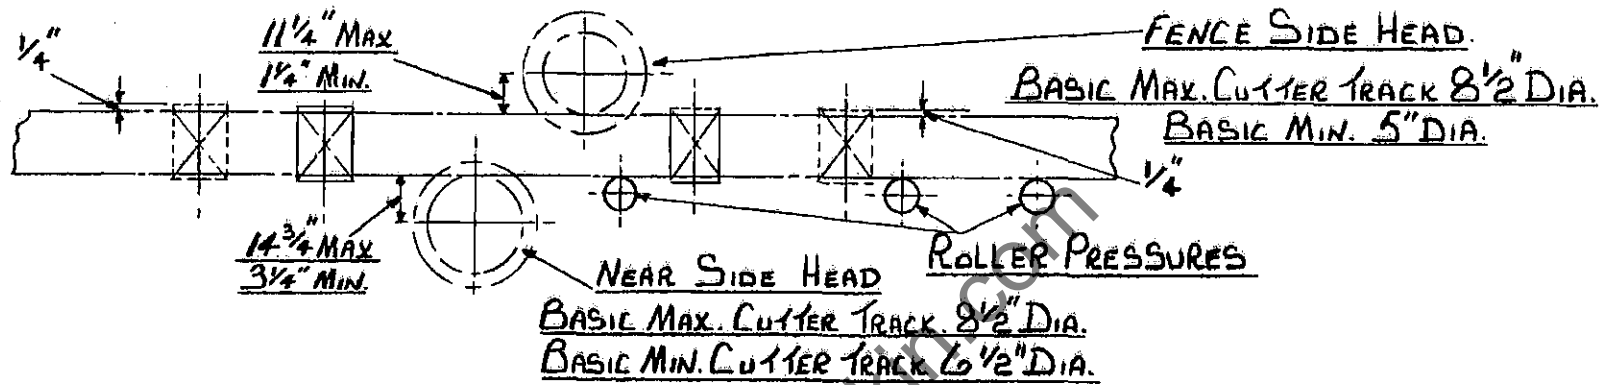 1/4"
11 1/4" MAX
1 1/4" MIN.
FENCE SIDE HEAD.
BASIC MAX. CUTTER TRACK 8 1/2" DIA.
BASIC MIN. 5" DIA.
1/4"
14 3/4" MAX
3 1/4" MIN.
ROLLER PRESSURES
NEAR SIDE HEAD
BASIC MAX. CUTTER TRACK. 8 1/2" DIA.
BASIC MIN. CUTTER TRACK 6 1/2" DIA.